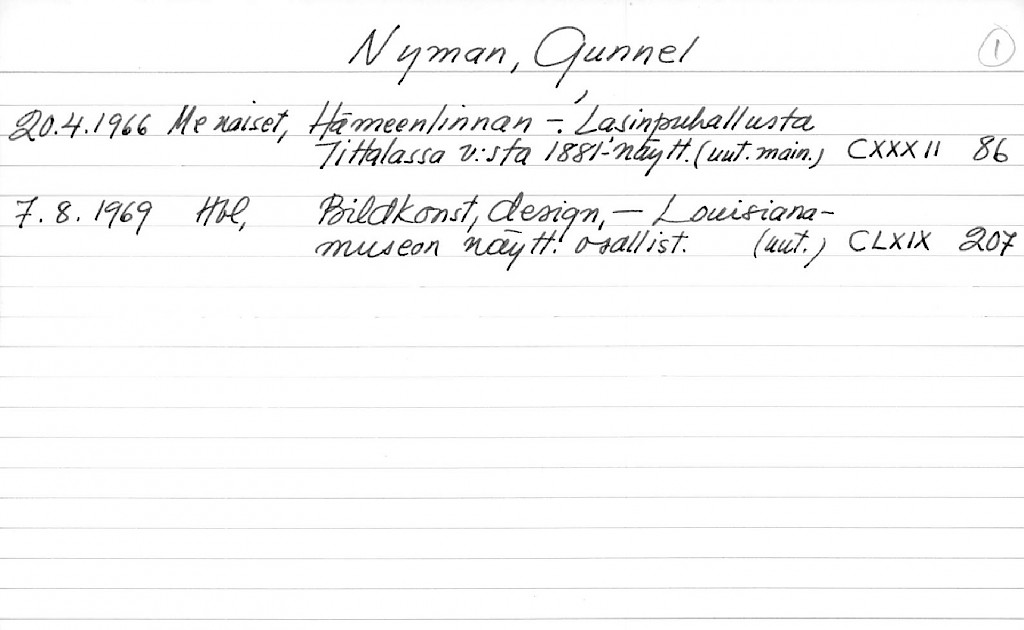 Nyman, Gunnel 1
20.4.1966 Me naiset, Hämeenlinnan -: Lasinpuhallusta
Iittalassa v:sta 1881-näytt. (uut. main.) CXXXII 86
7.8.1969 Hbl, Bildkonst, design, — Louisiana-
museon näytt. osallist. (uut.) CLXIX 207